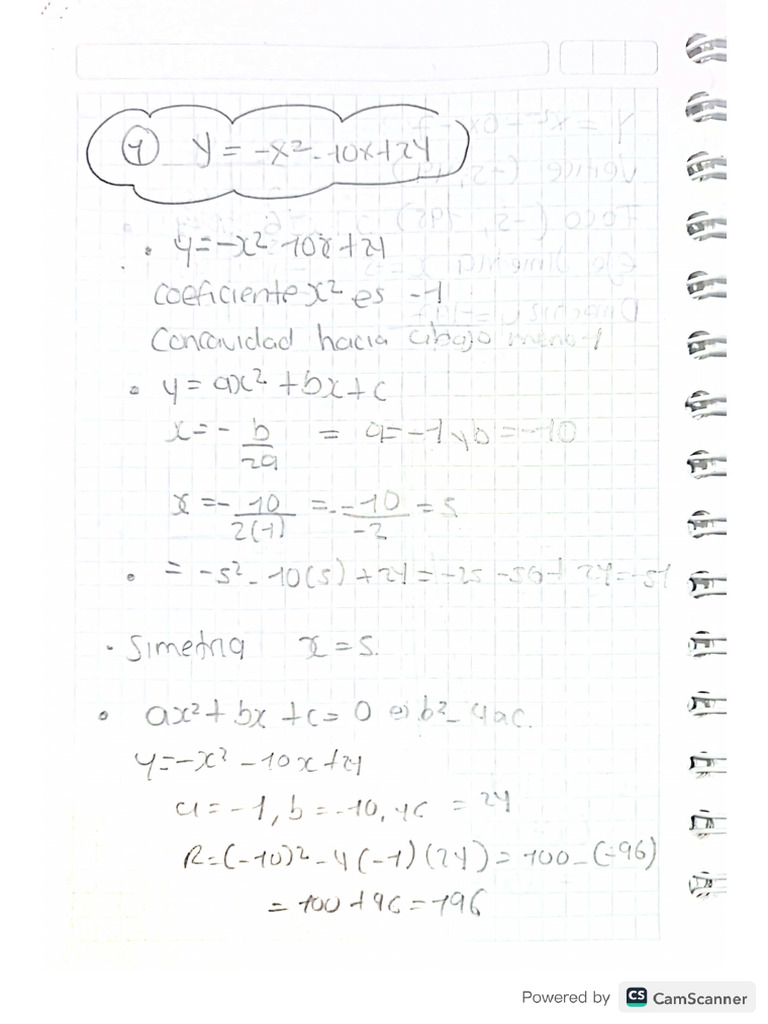 1 y = -x² - 10x + 24
• y = -x² - 10x + 24
coeficiente x² es -1
Concavidad hacia abajo
• y = ax² + bx + c
x = - b/2a = a = -1 y b = -10
x = - 10/2(-1) = - -10/-2 = 5
• = -5² - 10(5) + 24 = -25 - 50 + 24 = -51
• Simetria x = 5.
• ax² + bx + c = 0 es b² - 4ac.
y = -x² - 10x + 24
a = -1, b = -10, y c = 24
R = (-10)² - 4(-1)(24) = 100 - (-96)
= 100 + 96 = 196
Powered by CS CamScanner